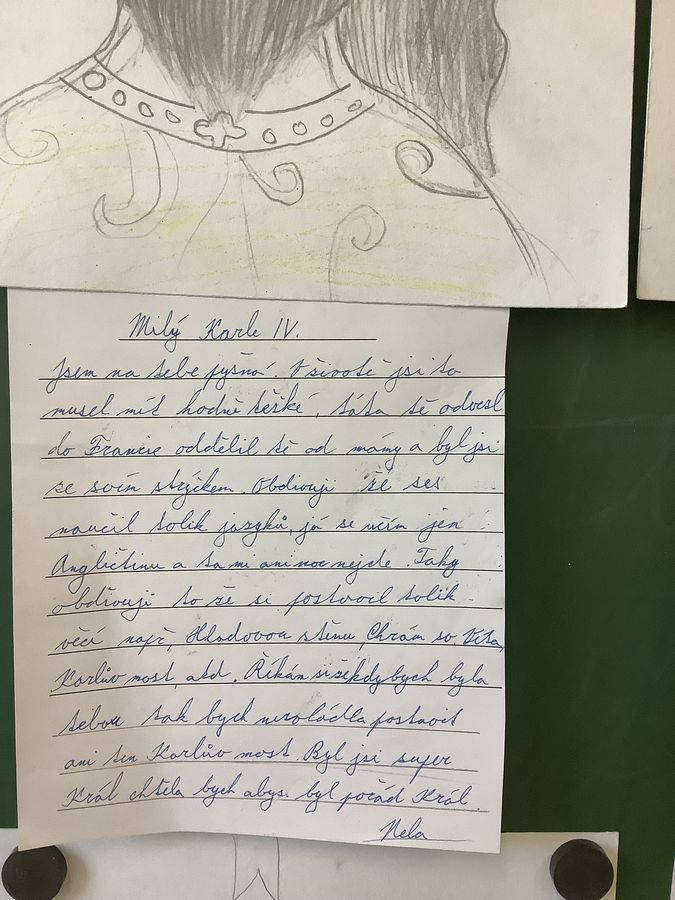 Milý Karle IV.
Jsem na tebe pyšná. V životě jsi to
musel mít hodně těžké, táta tě odvezl
do Francie oddělil tě od mámy a byl jsi
ze svím strýčkem. Obdivuji že ses
naučil tolik jazyků, já se učím jen
Angličtinu a ta mi ani moc nejde. Taky
obdivuji to že si postavil tolik
věcí např, Hladovou stěnu, Chrám sv. Víta,
Karlův most, atd. Říkám si že kdybych byla
tebou tak bych nezvládla postavit
ani ten Karlův most. Byl jsi super
Král chtěla bych abys byl pořád Král.
Nela